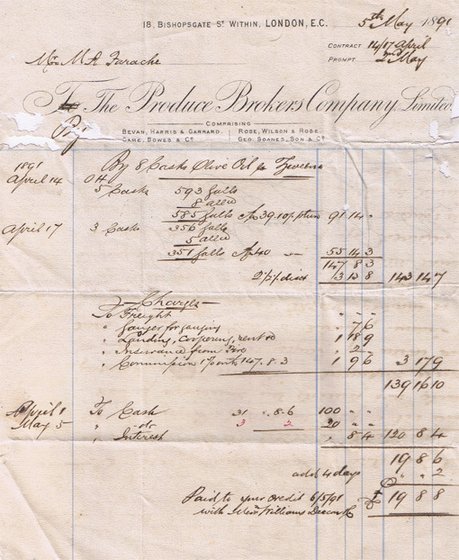 18, BISHOPSGATE ST WITHIN, LONDON, E.C. 5th May 1891
CONTRACT 14/17 April
Mr M A Farache PROMPT 2nd May
To The Produce Brokers Company, Limited.
COMPRISING
BEVAN, HARRIS & GARRARD. ROSE, WILSON & ROSE.
CAME, BOWES & Co. GEO. SOANES, SON & Co.
1891 By 8 Casks Olive Oil
April 14 5 Casks 593 galls
8 allce
585 galls @ 39.10 91 14 "
April 17 3 Casks 356 galls
5 allce
351 galls 55 14 3
147 8 3
2½% disct 3 13 8 143 14 7
Charges
To Freight " " "
" Gauger for gauging " 7 6
" Landing, coopering, rent &c 1 18 9
" Insurance from Fire " 2 "
" Commission 147. 8. 3 1 9 6 3 17 9
139 16 10
April 1 To Cash 31 " 8.6 100 " "
May 5 " do 3 2 20 " "
" Interest " 8 4 120 8 4
19 8 6
add 4 days " " 2
Paid to your credit 6/5/91 £ 19 8 8
with Williams Deacon &c